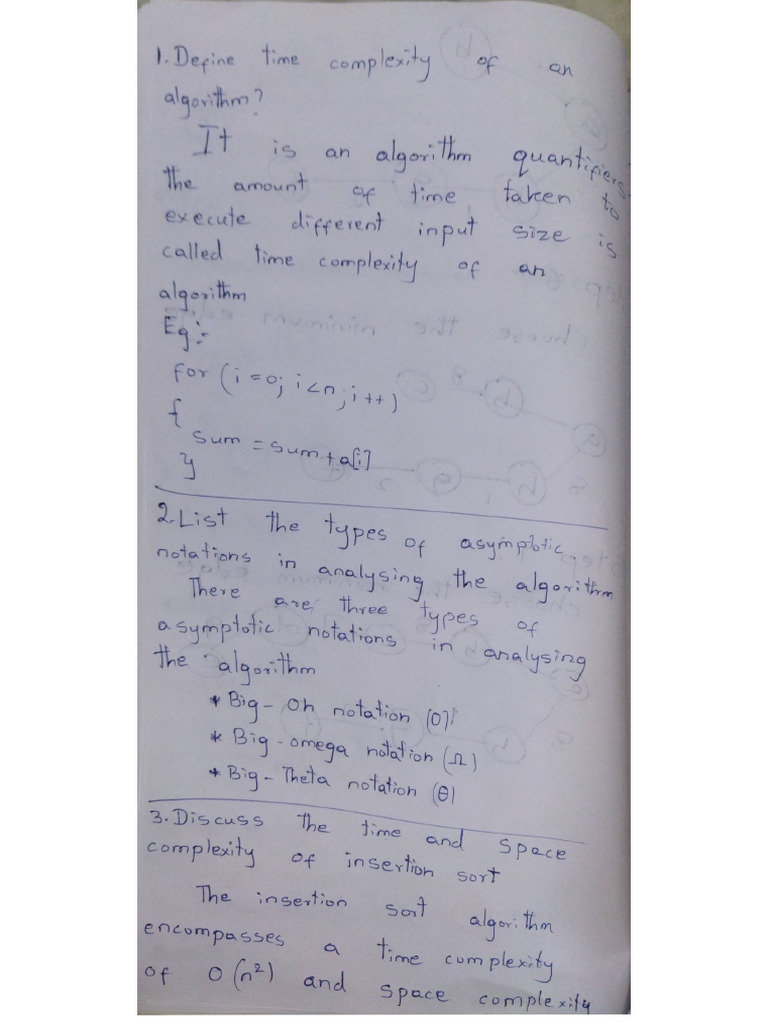 1. Define time complexity of an
algorithm?
It is an algorithm quantifiers
the amount of time taken to
execute different input size is
called time complexity of an
algorithm
Eg:-
for (i=0; i<n; i++)
{
sum = sum+a[i]
}
2. List the types of asymptotic
notations in analysing the algorithm
There are three types of
asymptotic notations in analysing
the algorithm
* Big-Oh notation (O)
* Big-omega notation (Ω)
* Big-Theta notation (θ)
3. Discuss the time and space
complexity of insertion sort
The insertion sort algorithm
encompasses a time complexity
of O(n²) and space complexity